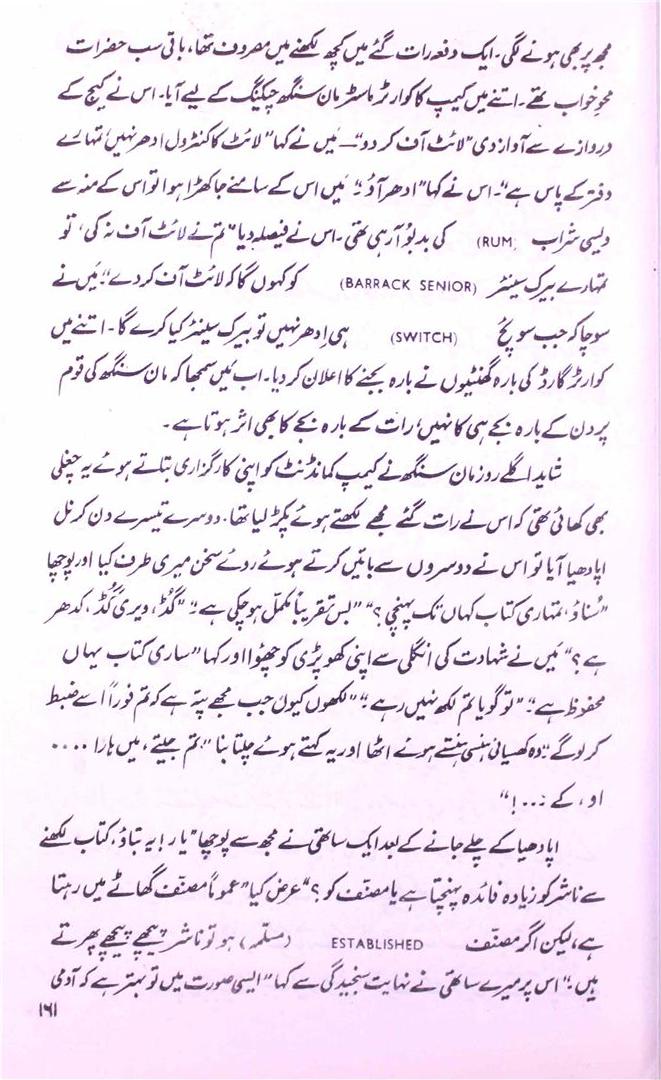 مجھ پر بھی ہونے لگی۔ ایک دفعہ رات گئے میں کچھ لکھنے میں مصروف تھا، باقی سب حضرات
محوِ خواب تھے۔ اتنے میں کیمپ کا کوارٹر ماسٹر مان سنگھ چیکنگ کے لیے آیا۔ اس نے کیج کے
دروازے سے آواز دی "لائٹ آف کر دو"۔ مَیں نے کہا "لائٹ کا کنٹرول ادھر نہیں، تمہارے
دفتر کے پاس ہے"۔ اس نے کہا "ادھر آؤ"۔ مَیں اس کے سامنے جا کھڑا ہوا تو اس کے منہ سے
دیسی شراب (RUM) کی بدبُو آ رہی تھی۔ اس نے فیصلہ دیا "تم نے لائٹ آف نہ کی، تو
تمہارے بیرک سینئر (BARRACK SENIOR) کو کہوں گا کہ لائٹ آف کر دے"۔ مَیں نے
سوچا کہ جب سوئچ (SWITCH) ہی اِدھر نہیں تو بیرک سینئر کیا کرے گا۔ اتنے میں
کوارٹر گارڈ کی بارہ گھنٹیوں نے بارہ بجنے کا اعلان کر دیا۔ اب مَیں سمجھا کہ مان سنگھ کی قوم
پر دن کے بارہ بجے ہی کا نہیں، رات کے بارہ بجے کا بھی اثر ہوتا ہے۔
شاید اگلے روز مان سنگھ نے کیمپ کمانڈنٹ کو اپنی کارگزاری بتاتے ہوئے یہ چغلی
بھی کھائی تھی کہ اس نے رات گئے مجھے لکھتے ہوئے پکڑ لیا تھا۔ دوسرے تیسرے دن کرنل
اپادھیا آیا تو اس نے دوسروں سے باتیں کرتے ہوئے روئے سخن میری طرف کیا اور پوچھا
"سُناؤ، تمہاری کتاب کہاں تک پہنچی؟" "بس تقریباً مکمل ہو چکی ہے"۔ "گُڈ، ویری گُڈ، کدھر
ہے؟" مَیں نے شہادت کی انگلی سے اپنی کھوپڑی کو چھُوا اور کہا "ساری کتاب یہاں
محفوظ ہے"۔ "تو گویا تم لکھ نہیں رہے"۔ "لکھوں کیوں جب مجھے پتہ ہے کہ تم فوراً اسے ضبط
کر لو گے"۔ وہ کھسیانی ہنسی ہنستے ہوئے اٹھا اور یہ کہتے ہوئے چلتا بنا "تم جیتے، میں ہارا ....
او، کے ...!"
اپادھیا کے چلے جانے کے بعد ایک ساتھی نے مجھ سے پوچھا "یار! یہ بتاؤ، کتاب لکھنے
سے ناشر کو زیادہ فائدہ پہنچتا ہے یا مصنف کو؟" عرض کیا "عموماً مصنّف گھاٹے میں رہتا
ہے، لیکن اگر مصنّف ESTABLISHED (مسلّمہ) ہو تو ناشر پیچھے پیچھے پھرتے
ہیں"۔ اس پر میرے ساتھی نے نہایت سنجیدگی سے کہا "ایسی صورت میں تو بہتر ہے کہ آدمی
۱۶۱